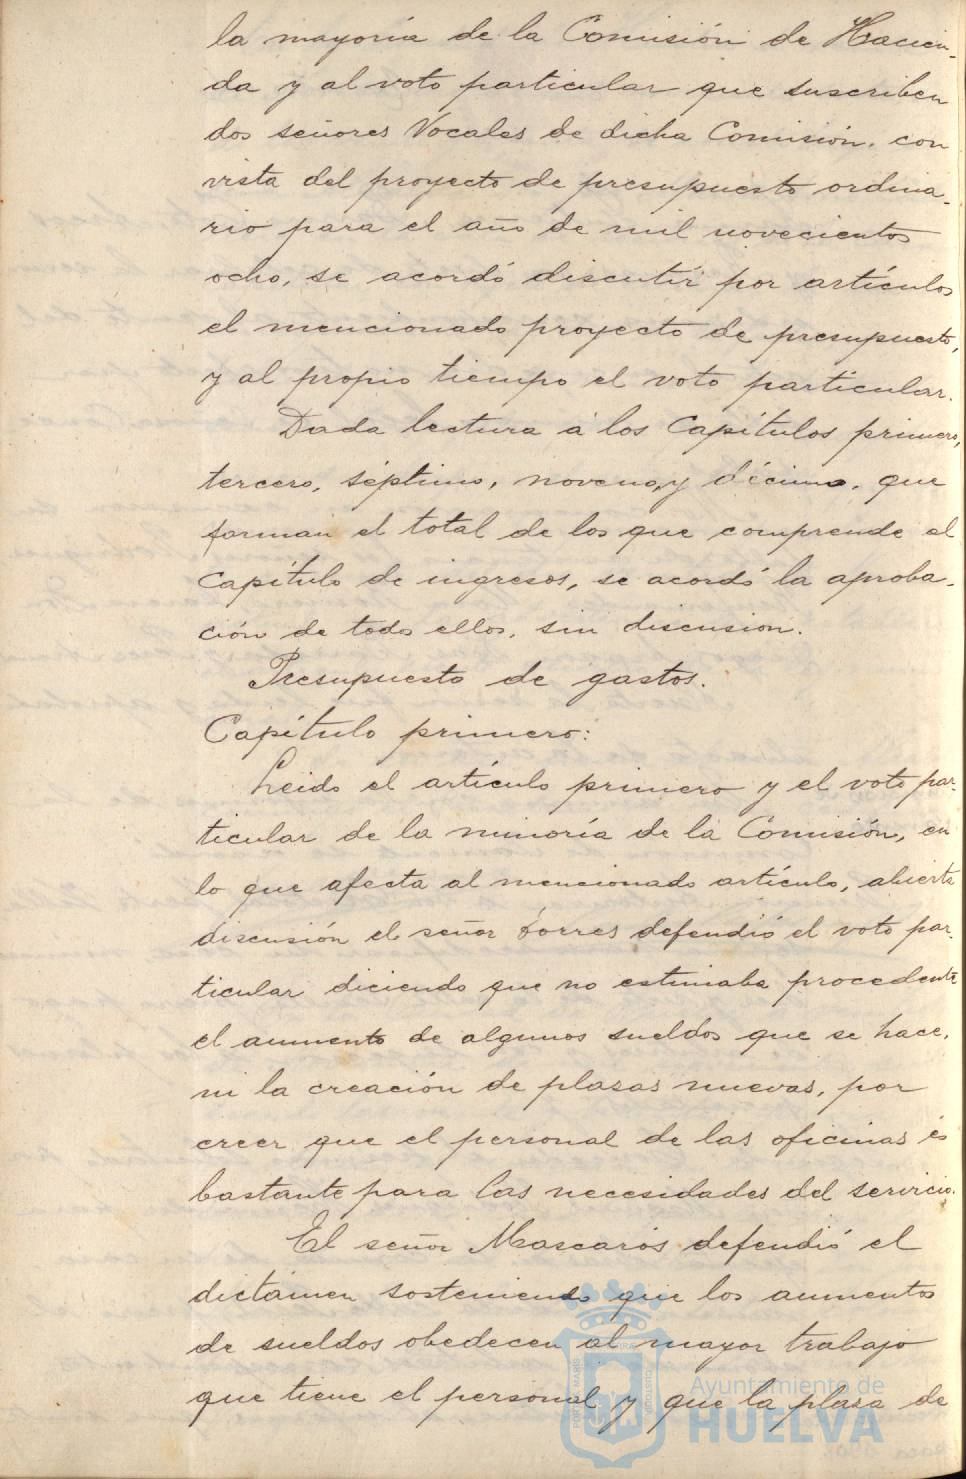 la mayoría de la Comisión de Hacien-
da y al voto particular que suscriben
dos señores Vocales de dicha Comisión, con
vista del proyecto de presupuesto ordina-
rio para el año de mil novecientos
ocho, se acordó discutir por artículos
el mencionado proyecto de presupuesto,
y al propio tiempo el voto particular.
Dada lectura á los Capítulos primero,
tercero, séptimo, noveno, y décimo, que
forman el total de los que comprende el
Capítulo de ingresos, se acordó la aproba-
ción de todos ellos, sin discusion.
Presupuesto de gastos.
Capítulo primero:
Leido el artículo primero y el voto par-
ticular de la minoría de la Comisión, en
lo que afecta al mencionado artículo, abierta
discusión el señor Torres defendió el voto par-
ticular diciendo que no estimaba procedente
el aumento de algunos sueldos que se hace,
ni la creación de plasas nuevas, por
creer que el personal de las oficinas és
bastante para las necesidades del servicio.
El señor Mascarós defendió el
dictámen sosteniendo que los aumentos
de sueldos obedecen al mayor trabajo
que tiene el personal y que la plasa de
Ayuntamiento de
HUELVA